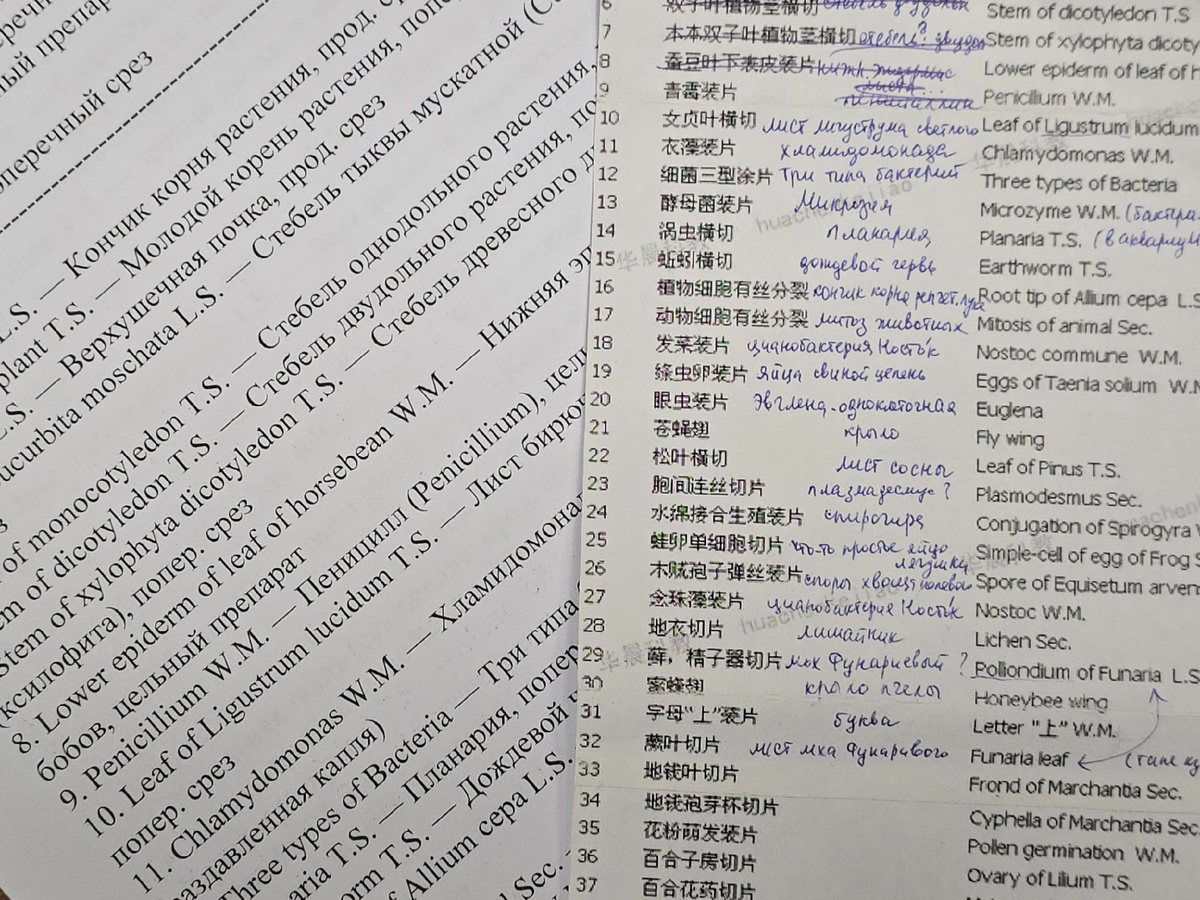 поперечный срез
L.S. — Кончик корня растения, прод. с
plant T.S. — Молодой корень растения, попе
L.S. — Верхушечная почка, прод. срез
ucurbita moschata L.S. — Стебель тыквы мускатной (C
of monocotyledon T.S. — Стебель однодольного растения,
em of dicotyledon T.S. — Стебель двудольного растения, по
Stem of xylophyta dicotyledon T.S. — Стебель древесного д
(ксилофита), попер. срез
8. Lower epiderm of leaf of horsebean W.M. — Нижняя эп
бобов, цельный препарат
9. Penicillium W.M. — Пеницилл (Penicillium), цел
10. Leaf of Ligustrum lucidum T.S. — Лист бирюч
попер. срез
11. Chlamydomonas W.M. — Хламидомона
Three types of Bacteria — Три типа
раздавленная капля)
naria T.S. — Планария, попер
orm T.S. — Дождевой ч
f Allium cepa L.S.
l Sec. —
6 双子叶植物茎横切 Stem of dicotyledon T.S
7 木本双子叶植物茎横切 стебель? двудол Stem of xylophyta dicoty
8 蚕豆叶下表皮装片 нижн. эпидермис листа... Lower epiderm of leaf of h
9 青霉装片 пенициллин Penicillium W.M.
10 女贞叶横切 лист лигуструма светлого Leaf of Ligustrum lucidum
11 衣藻装片 хламидомонада Chlamydomonas W.M.
12 细菌三型涂片 три типа бактерий Three types of Bacteria
13 酵母菌装片 Микрозея Microzyme W.M. (бактери
14 涡虫横切 планария Planaria T.S. (в аквариум
15 蚯蚓横切 дождевой червь Earthworm T.S.
16 植物细胞有丝分裂 кончик корня репчет. лука Root tip of Allium cepa L.S
17 动物细胞有丝分裂 митоз животных Mitosis of animal Sec.
18 发菜装片 цианобактерия Носток Nostoc commune W.M.
19 绦虫卵装片 яйца свиной цепень Eggs of Taenia solium W.M
20 眼虫装片 Эвглена-одноклеточная Euglena
21 苍蝇翅 крыло Fly wing
22 松叶横切 лист сосны Leaf of Pinus T.S.
23 胞间连丝切片 плазмадесмус? Plasmodesmus Sec.
24 水绵接合生殖装片 спирогира Conjugation of Spirogyra W
25 蛙卵单细胞切片 что-то простое яйцо лягушки Simple-cell of egg of Frog S
26 木贼孢子弹丝装片 споры хвоща полевого Spore of Equisetum arven
27 念珠藻装片 цианобактерия Носток Nostoc W.M.
28 地衣切片 лишайник Lichen Sec.
29 藓，精子器切片 мох Фунариевый ? Polliondium of Funaria L.S
30 蜜蜂翅 крыло пчелы Honeybee wing
31 字母“上”装片 буква Letter "上" W.M.
32 藓叶切片 лист мха Фунаривого Funaria leaf
33 地钱叶切片 Frond of Marchantia Sec.
34 地钱孢芽杯切片 Cyphella of Marchantia Sec
35 花粉萌发装片 Pollen germination W.M.
36 百合子房切片 Ovary of Lilium T.S.
37 百合花药切片
华晨科教 huachenkejiao